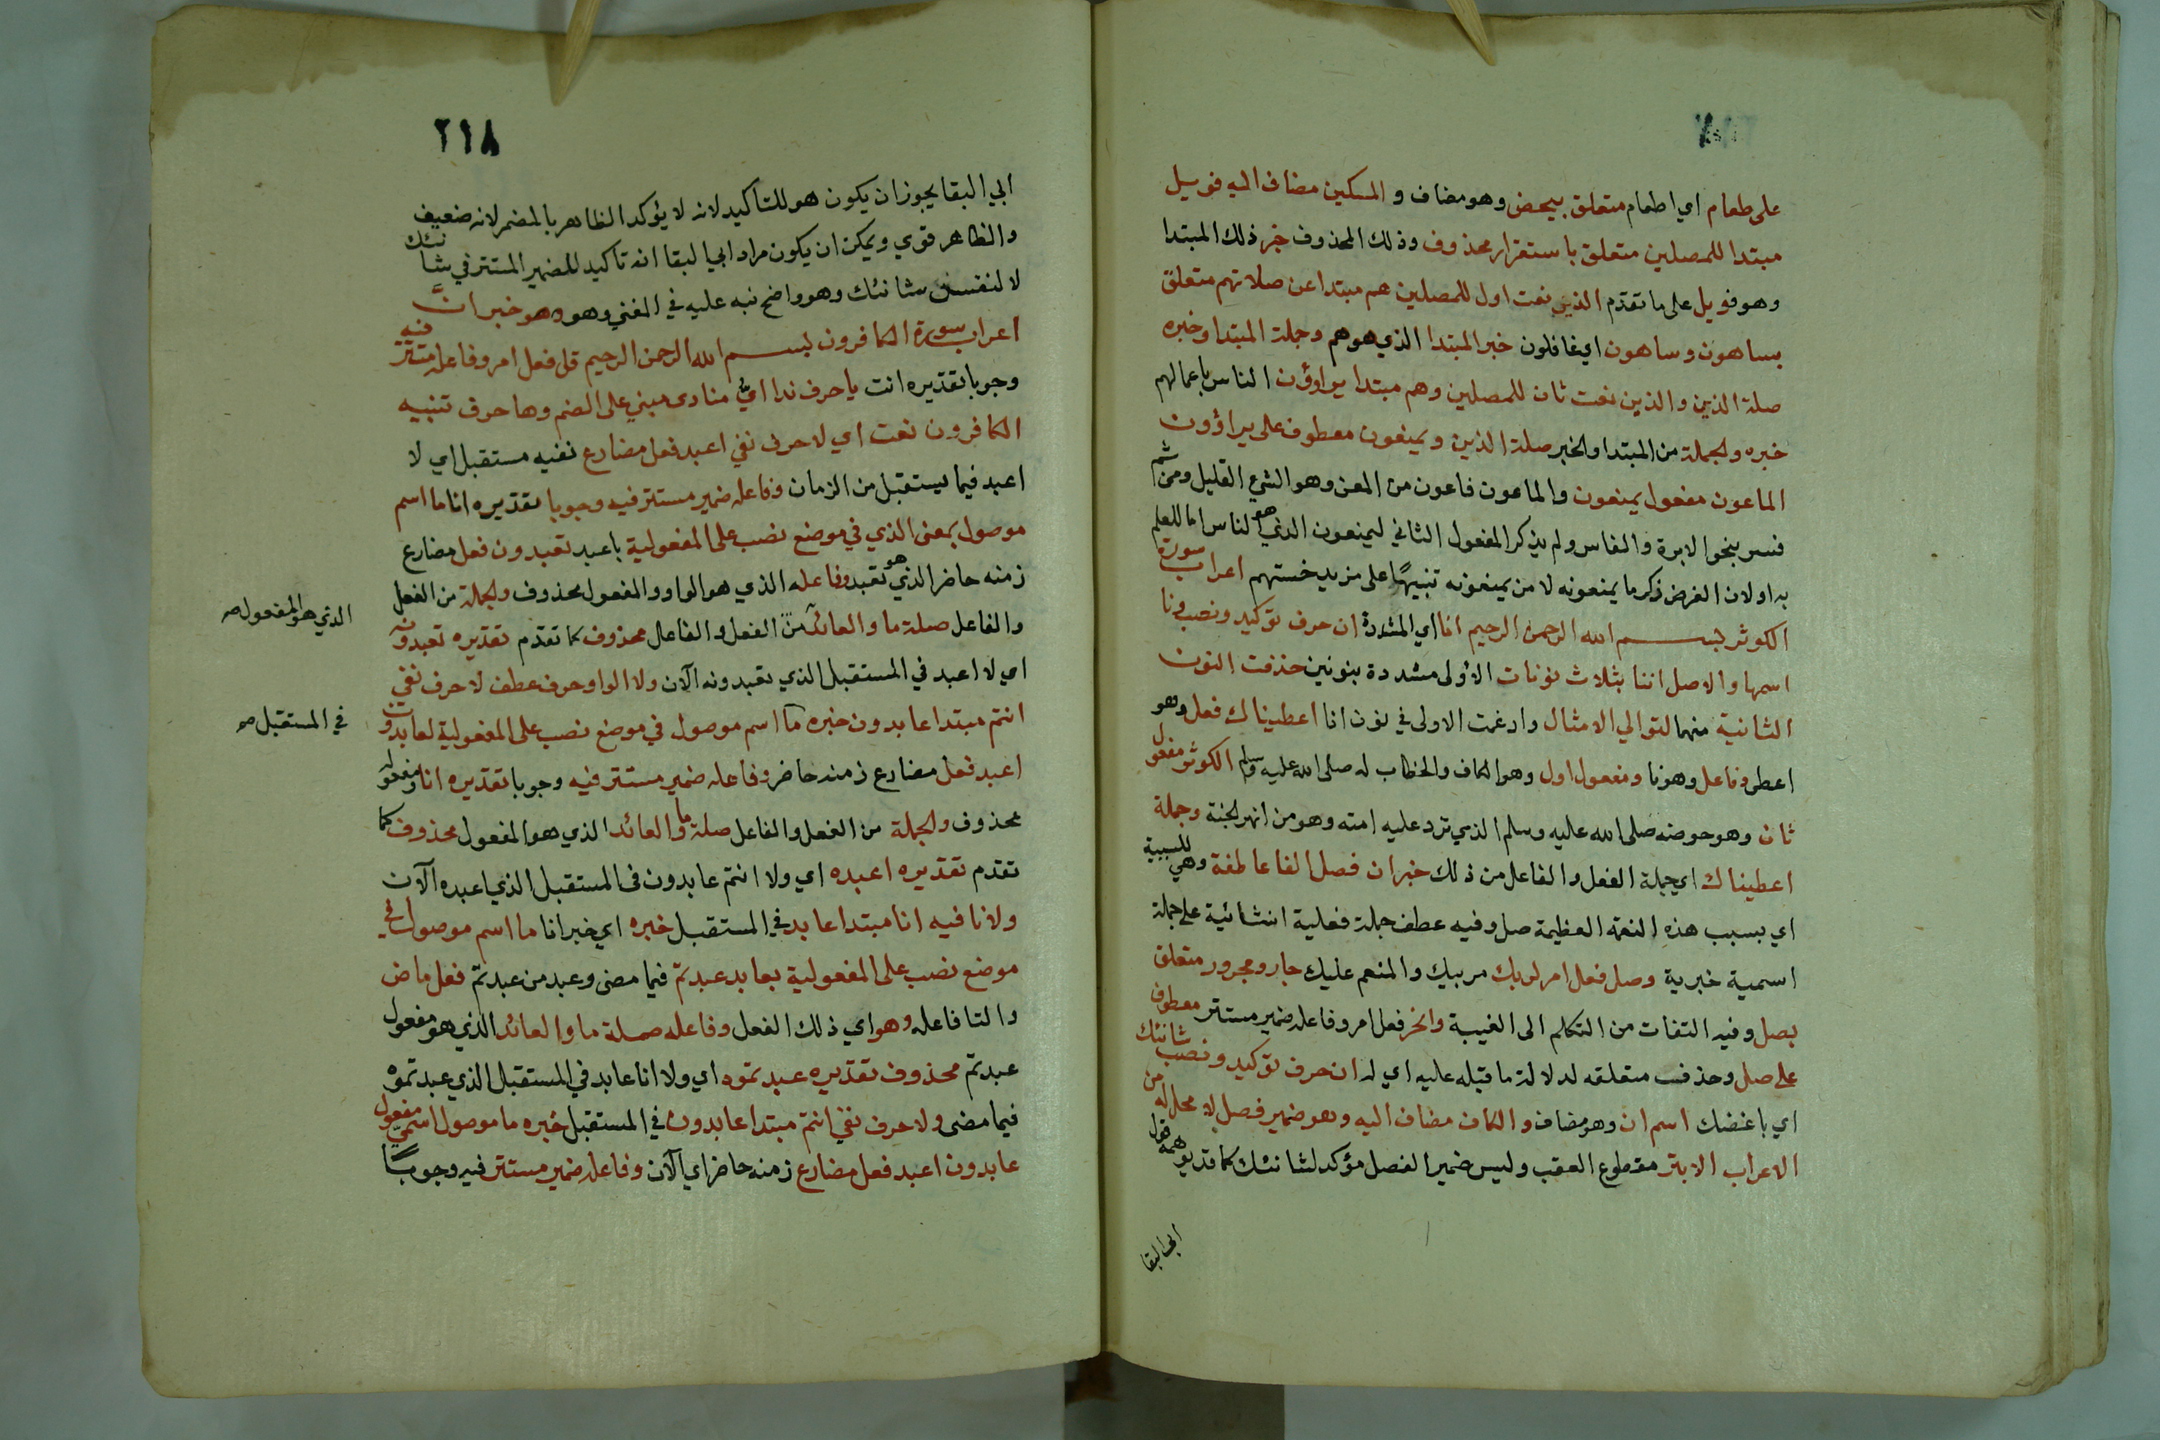 على طعام اي اطعام متعلق بيحض وهو مضاف و المسكين مضاف اليه فويل
مبتدا للمصلين متعلق باستقرار محذوف وذلك المحذوف خبر ذلك المبتدا
وهو فويل على ما تقدم الذين نعت اول للمصلين هم مبتدا عن صلاتهم متعلق
بساهون وساهون اي غافلون خبر المبتدا الذي هو هم وجملة المبتدا وخبره
صلة الذين والذين نعت ثان للمصلين وهم مبتدا يراؤن الناس باعمالهم
خبره والجملة من المبتدا والخبر صلة الذين ويمنعون معطوف على يراؤون
الماعون مفعول يمنعون والماعون فاعون من المعن وهو الشيء القليل ومن ثم
فسر بنحو الابرة والفاس ولم يذكر المفعول الثاني ليمنعون الذي هو الناس اما للعلم
به او لان الغرض ذكر ما يمنعونه لا من يمنعونه تنبيها على مزيد خستهم اعراب سورة
الكوثر بسم الله الرحمن الرحيم انا اي المشددة ان حرف توكيد ونصب ونا
اسمها والاصل اننا بثلاث نونات الاولى مشددة بنونين حذفت النون
الثانية منهما لتوالي الامثال وادغمت الاولى في نون انا اعطيناك فعل وهو
اعطى وفاعل وهو نا ومفعول اول وهو الكاف والخطاب له صلى الله عليه وسلم الكوثر مفعول
ثان وهو حوضه صلى الله عليه وسلم الذي ترد عليه امته وهو من انهر الجنة وجملة
اعطيناك اي جملة الفعل والفاعل من ذلك خبر ان فصل الفا عاطفة وهي للسببية
اي بسبب هذه النعمة العظيمة صل وفيه عطف جملة فعلية انشائية على جملة
اسمية خبرية وصل فعل امر لربك مربيك والمنعم عليك جار ومجرور متعلق
بصل وفيه التفات من التكلم الى الغيبة وانحر فعل امر وفاعله ضمير مستتر معطوف
على صل وحذف متعلقه لدلالة ما قبله عليه اي له ان حرف توكيد ونصب شانئك
اي باغضك اسم ان وهو مضاف والكاف مضاف اليه وهو ضمير فصل لا محل له من
الاعراب الابتر مقطوع العقب وليس ضمير الفصل مؤكد لشانئك كما قد يوهمه قول
ابي البقا
٢١٨
ابي البقا يجوز ان يكون هو للتاكيد لانه لا يؤكد الظاهر بالمضمر لانه ضعيف
والظاهر قوي ويمكن ان يكون مراد ابي البقا انه تاكيد للضمير المستتر في شانئك
لا لنفس شانئك وهو واضح نبه عليه في المغني وهو وهو خبر ان
اعراب سورة الكافرون بسم الله الرحمن الرحيم قل فعل امر وفاعله مستتر فيه
وجوبا تقديره انت يا حرف ندا اي منادى مبني على الضم وها حرف تنبيه
الكافرون نعت اي لا حرف نفي اعبد فعل مضارع نفيه مستقبل اي لا
اعبد فيما يستقبل من الزمان وفاعله ضمير مستتر فيه وجوبا تقديره انا ما اسم
موصول بمعنى الذي في موضع نصب على المفعولية باعبد تعبدون فعل مضارع
زمنه حاضر الذي هو تعبد وفاعله الذي هو الواو والمفعول محذوف والجملة من الفعل
والفاعل صلة ما والعائد من الفعل والفاعل محذوف كما تقدم تقديره تعبدونه
الذي هو المفعول صح
اي لا اعبد في المستقبل الذي تعبدونه الآن ولا الواو حرف عطف لا حرف نفي
انتم مبتدا عابدون خبره ما اسم موصول في موضع نصب على المفعولية لعابدون
في المستقبل صح
اعبد فعل مضارع زمنه حاضر وفاعله ضمير مستتر فيه وجوبا تقديره انا ومفعوله
محذوف والجملة من الفعل والفاعل صلة ما والعائد الذي هو المفعول محذوف كما
تقدم تقديره اعبده اي ولا انتم عابدون في المستقبل الذي اعبده الآن
ولا نافيه انا مبتدا عابد في المستقبل خبره اي خبر انا ما اسم موصول في
موضع نصب على المفعولية بعابد عبدتم فيما مضى وعبد من عبدتم فعل ماض
والتا فاعله وهو اي ذلك الفعل وفاعله صلة ما والعائد الذي هو مفعول
عبدتم محذوف تقديره عبدتموه اي ولا انا عابد في المستقبل الذي عبدتموه
فيما مضى ولا حرف نفي انتم مبتدا عابدون في المستقبل خبره ما موصول اسمي مفعول
عابدون اعبد فعل مضارع زمنه حاضر اي الآن وفاعله ضمير مستتر فيه وجوبا